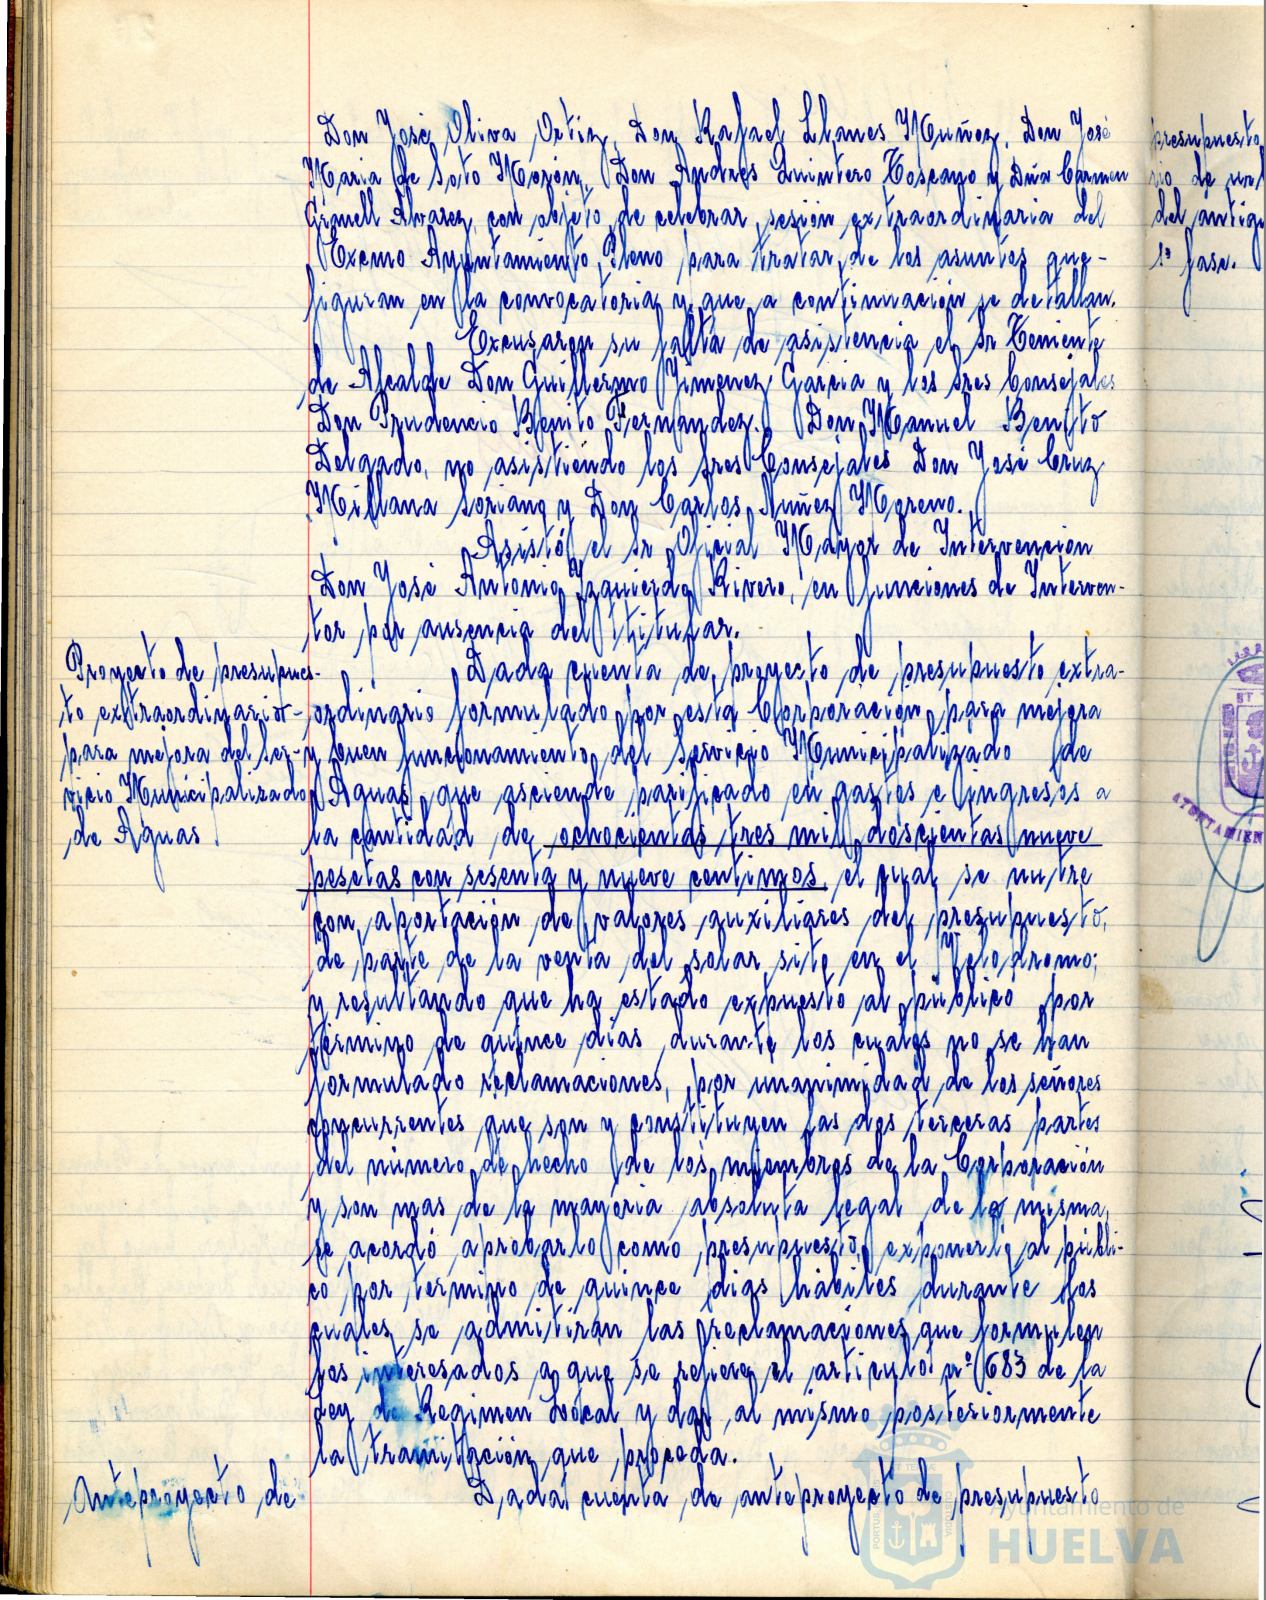 Don José Oliva Ortiz, Don Rafael Llanes Muñoz, Don José
Maria de Soto Morón, Don Andres Quintero Toscano y Dña Carmen
Granell Alvarez, con objeto de celebrar sesión extraordinaria del
Excmo Ayuntamiento Pleno para tratar de los asuntos que-
figuran en la convocatoria y que a continuación se detallan.
Excusaron su falta de asistencia el Sr Teniente
de Alcalde Don Guillermo Jimenez Garcia y los Sres Consejales
Don Prudencio Benito Fernandez. Don Manuel Benito
Delgado, no asistiendo los Sres Consejales Don José Cruz
Millana Soriano y Don Carlos Nuñez Moreno.
Asistó el Sr Oficial Mayor de Intervención
Don José Antonio Izquierdo Rivero, en funciones de Interven-
tor por ausencia del titular.
Proyecto de presupues-
to extraordinario-
para mejora del Ser-
vicio Municipalizado
de Aguas.
Dada cuenta de proyecto de presupuesto extra-
ordinario formulado por esta Corporación para mejora
y buen funcionamiento del Servicio Municipalizado de
Aguas que asciende parificado en gastos e ingresos a
la cantidad de ochocientas tres mil doscientas nueve
pesetas con sesenta y nueve centimos, el cual se nutre
con aportación de valores auxiliares del presupuesto,
de parte de la venta del solar sito en el Velodromo;
y resultando que ha estado expuesto al público por
término de quince dias durante los cuales no se han
formulado reclamaciones, por unanimidad de los señores
concurrentes que son y constituyen las dos terceras partes
del número de hecho de los miembros de la Corporación
y son mas de la mayoria absoluta legal de la misma,
se acordó aprobarlo como presupuesto, exponerlo al públi-
co por termino de quince dias hábiles durante los
cuales se admitirán las reclamaciones que formulen
los interesados a que se refiere el articulo nº 683 de la
Ley de Regimen Local y dar al mismo posteriormente
la tramitación que proceda.
Anteproyecto de
Dada cuenta de anteproyecto de presupuesto
presupuesto
del antigu
1ª fase.
Ayuntamiento de
HUELVA